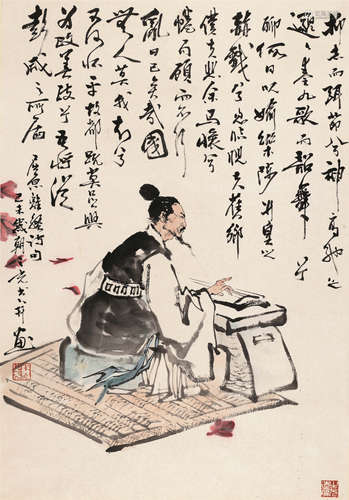 抑志而弭節兮神高馳之
邈〻奏九歌而韶舞兮
聊假日以媮樂陟升皇之
赫戲兮忽臨睨夫舊鄉
僕夫悲余馬懷兮
蜷局顧而不行
亂曰已矣哉國
無人莫我知兮
又何懷乎故都既莫足以與
為美政兮吾將從
彭咸之所居
屈原離騷詩句
己未歲朝
畫